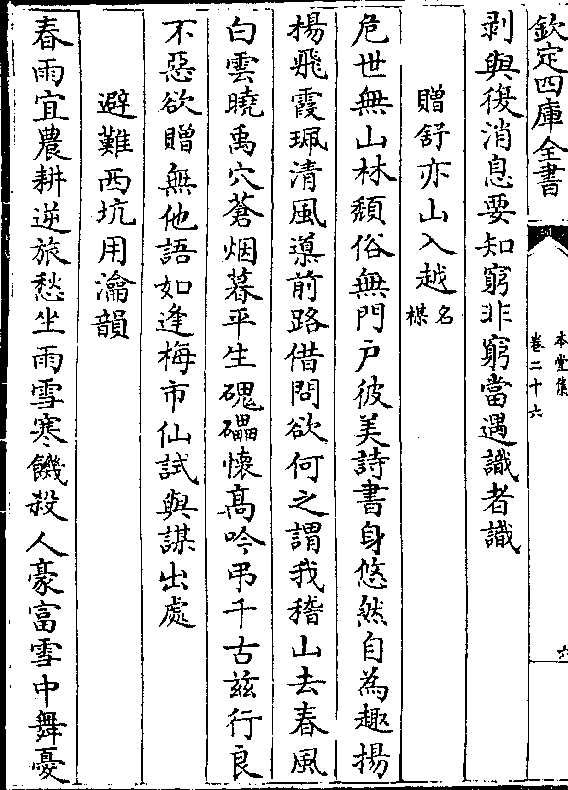 欽定四庫全書
本堂集
卷二十六
六
剥與後消息要知窮非窮當遇識者識
贈舒亦山入越名楳
危世無山林頹俗無門戶彼美詩書身悠然自為趣揚
楊飛霞珮清風導前路借問欲何之謂我稽山去春風
白雲曉禹穴蒼烟暮平生磈礧懷高吟弔千古茲行良
不惡欲贈無他語如逢梅市仙試與謀出處
避難西坑用瀹韻
春雨宜農耕逆旅愁坐雨雪寒饑殺人豪富雪中舞憂